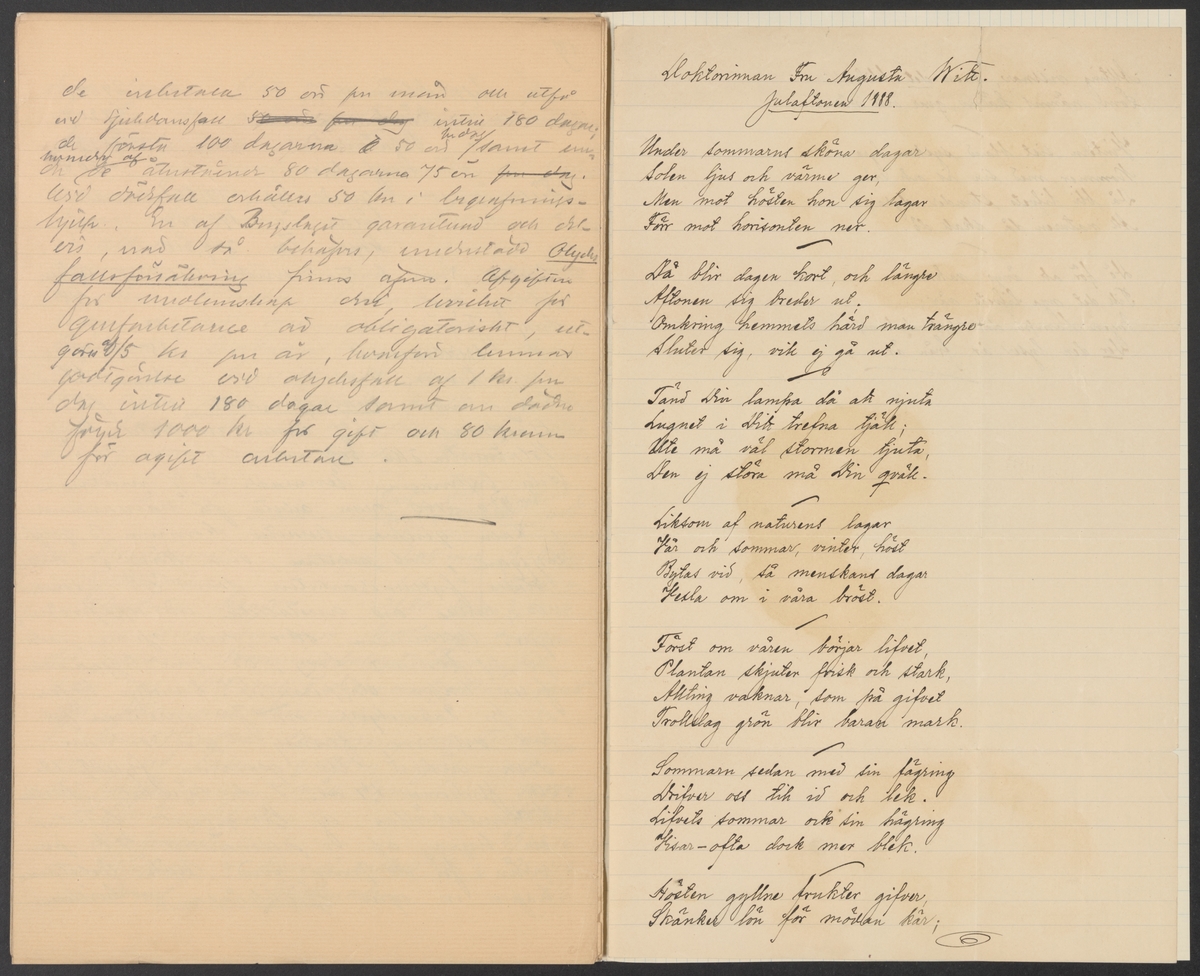 de inbetala 50 öre per månad och utfå
vid sjukdomsfall 50 öre per dag intill 180 dagar,
de första 100 dagarna à 50 öre samt
de återstående 80 dagarna 75 öre per dag.
Vid dödsfall erhålles 50 kr i begrafnings-
hjelp. En af Bergslaget garanterad och
vid behof, understödd Olycks
fallsförsäkring finns äfven. Afgiften
för medlemskap deri, hvilket för
grufarbetare är obligatoriskt, ut-
göres 5 kr per år, hvarför lemnas
godtgörelse vid olycksfall af 1 kr. per
dag intill 180 dagar samt om döden
följer 1000 kr för gift och 80 kronor
för ogift arbetare.
Doktorinnan Fru Augusta Witt.
Julaftonen 1888.
Under sommarns sköna dagar
Solen ljus och värme ger,
Men mot hösten hon sig lagar
Förr mot horisonten ner.
Då blir dagen kort, och längre
Aftonen sig breder ut;
Omkring hemmets härd man trängre
Sluter sig, vill ej gå ut.
Tänd Din lampa då att njuta
Lugnet i Ditt trefna tjäll;
Ute må väl stormen tjuta,
Den ej störa må Din qväll.
Liksom af naturens lagar
Vår och sommar, vinter, höst
Bytas vid, så menskans dagar
Vexla om i våra bröst.
Först om våren börjar lifvet,
Plantan skjuter frisk och stark,
Allting vaknar, som på gifvet
Trollslag grön blir baran mark.
Sommarn sedan med sin fägring
Drifver oss till id och lek.
Lifvets sommar ock sin hägring
Visar – ofta dock mer blek.
Hösten gyllne frukter gifver,
Skänker lön för mödan kär;